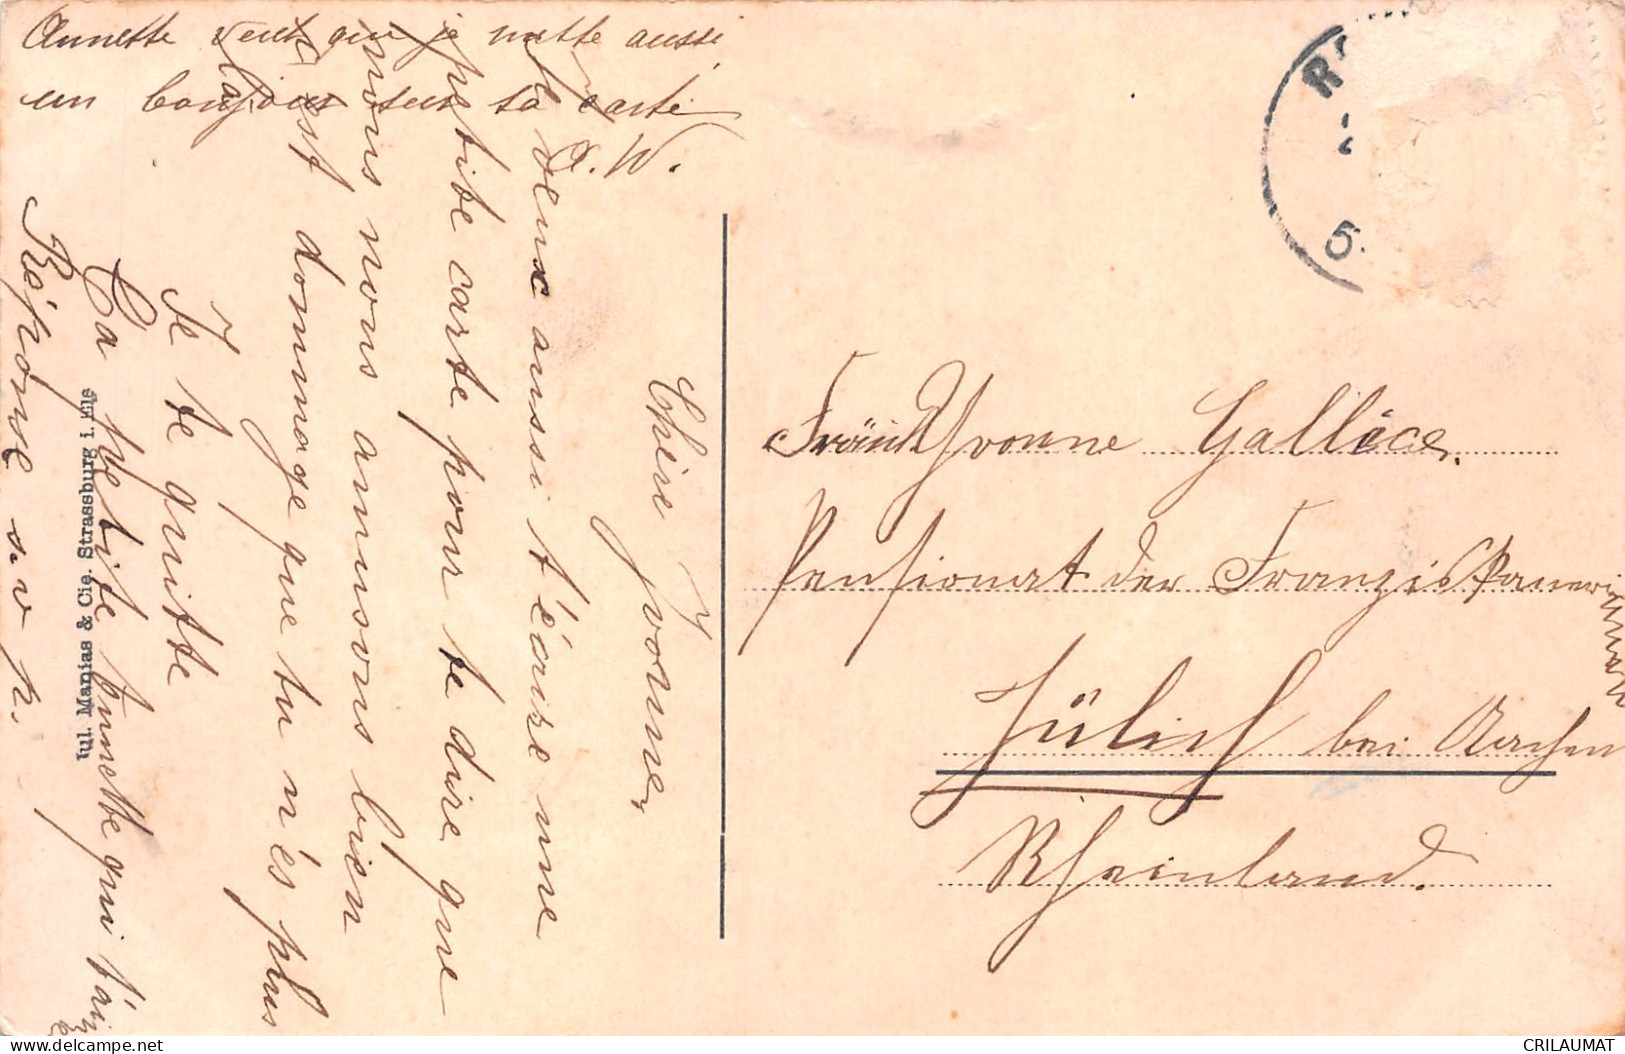 Annette veut que je mette aussi
un bonjour sur ta carte
A. W.
Chère Yvonne,
Je veux aussi t'écrire une
petite carte pour te dire que
nous nous amusons bien
c'est dommage que tu n'es plus
là.
Je te quitte
Ta petite Annette qui t'aime
Réponse s. v p.
Jul. Manias & Cie. Strassburg i. Els
R
5.
Fräul Yvonne Gallice,
Pensionat der Franziskanerinnen
Jülich bei Aachen
Rheinland.
CRILAUMAT